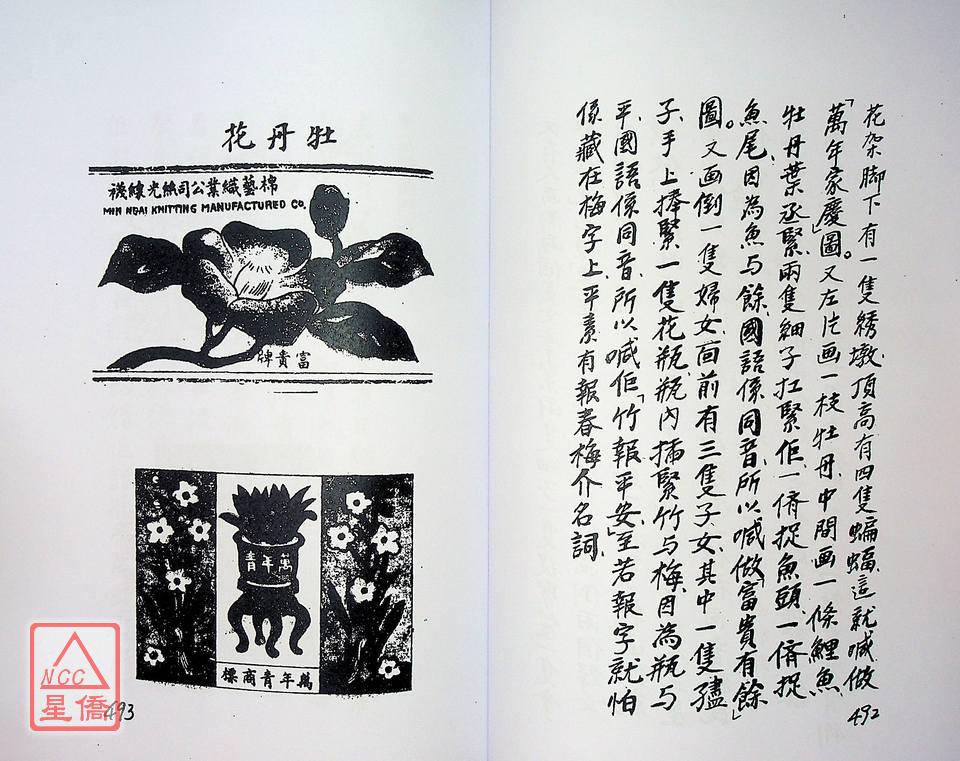 花架脚下有一隻綉墩、頂高有四隻蝙蝠、這就喊做
「萬年家慶」圖。又左片画一枝牡丹、中間画一條鯉魚
牡丹葉丞緊兩隻細子扛緊佢、一儕捉魚頭、一儕捉
魚尾、因為魚与餘、國語係同音、所以喊做「富貴有餘」
圖。又画倒一隻婦女、面前有三隻子女、其中一隻孻
子、手上捧緊一隻花瓶、瓶內插緊竹与梅、因為瓶与
平、國語係同音、所以喊佢「竹報平安」、至若報字就怕
係藏在梅字上、平素有報春梅介名詞、
492
牡丹花
棉藝織業公司絲光線襪
MIN NGAI KNITTING MANUFACTURED CO.
富貴牌
萬年青
萬年青商標
493
NCC
星僑